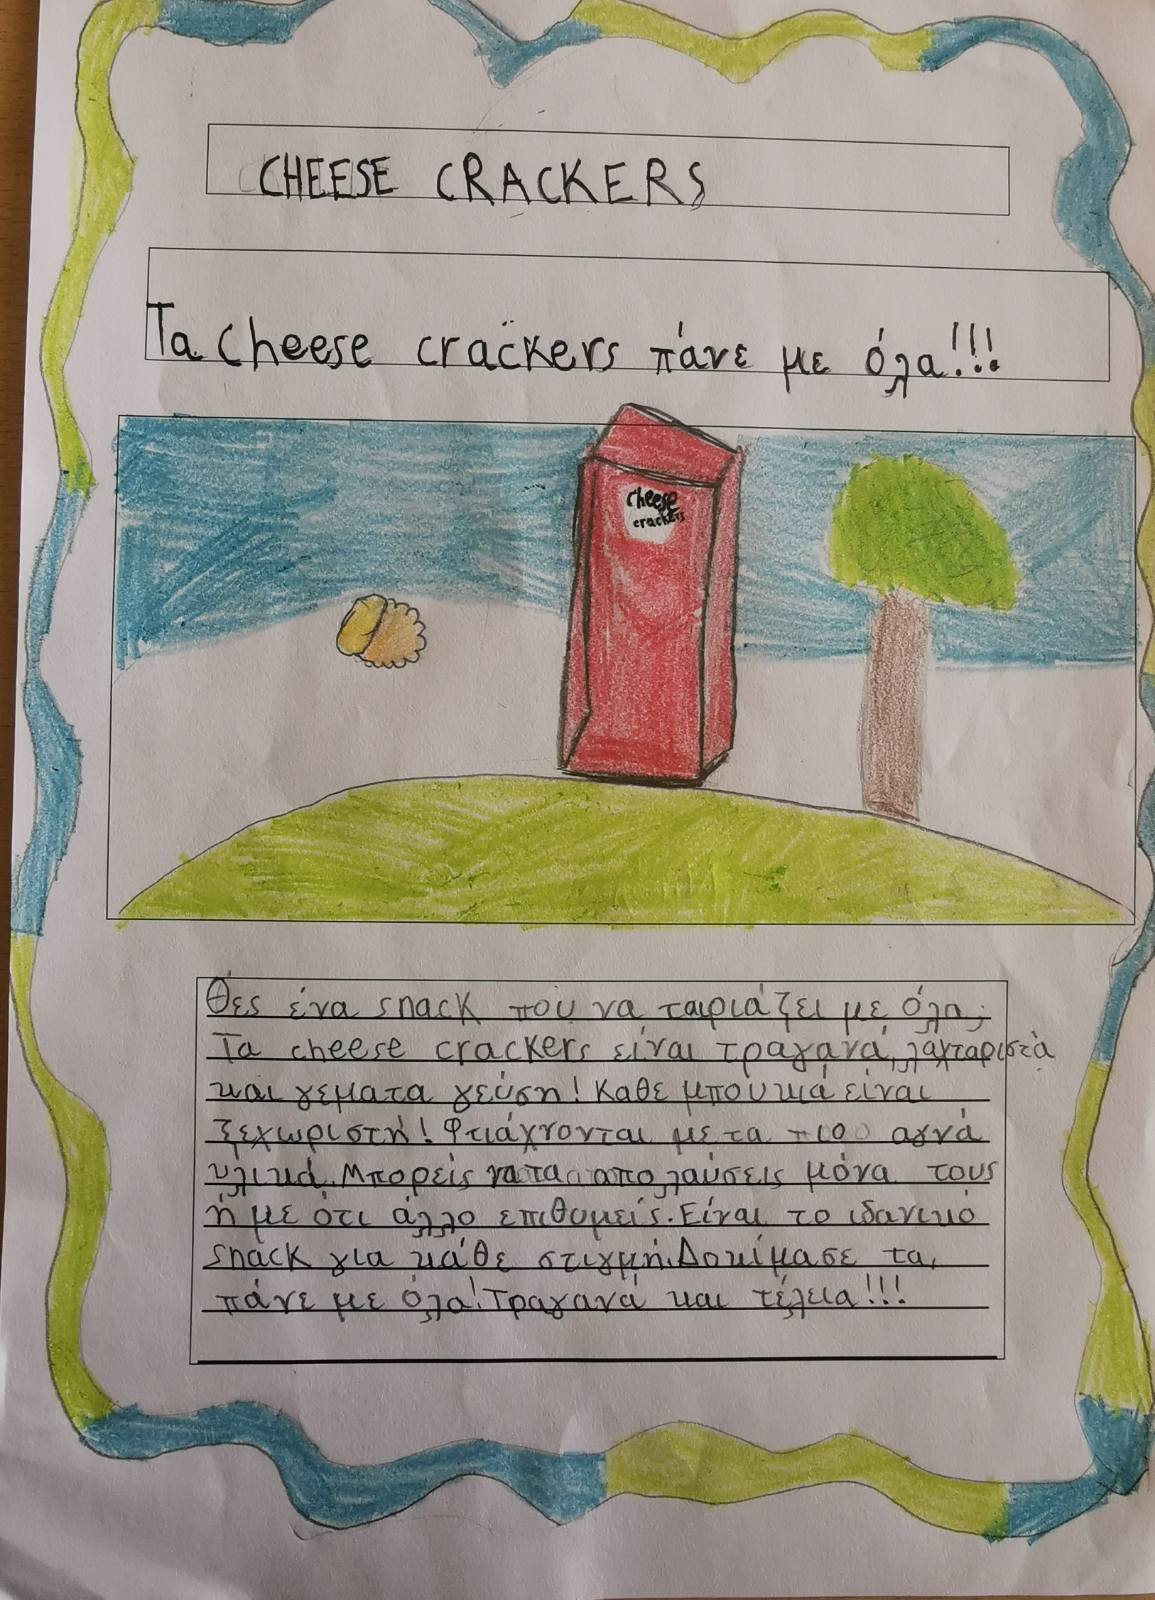 CHEESE CRACKERS
Τα cheese crackers πάνε με όλα!!!
cheese
crackers
Θες ένα snack που να ταιριάζει με όλα;
Τα cheese crackers είναι τραγανά, λαχταριστά
και γεματα γεύση! Καθε μπουκιά είναι
ξεχωριστή! Φτιάχνονται με τα πιο αγνά
υλικά. Μπορείς να τα απολαύσεις μόνα τους
ή με ότι άλλο επιθυμείς. Είναι το ιδανικό
snack για κάθε στιγμή. Δοκίμασε τα,
πάνε με όλα! Τραγανά και τέλεια!!!